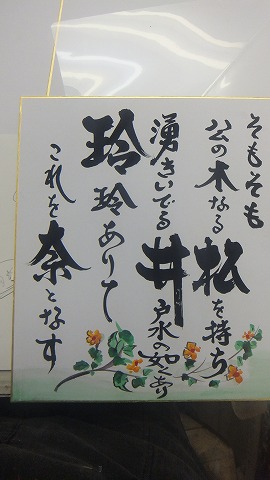 そもそも
公の木なる松を持ち
湧きいでる井戸水の如くあり
玲玲ありて
これを奈となす